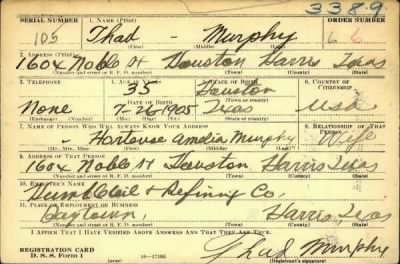 3389
SERIAL NUMBER 1. NAME (Print) ORDER NUMBER
105 Thad - Murphy
(First) (Middle) (Last)
2. ADDRESS (Print)
1604 Noble St Houston Harris Texas
(Number and street or R. F. D. number) (Town) (County) (State)
3. TELEPHONE 4. AGE IN YEARS 5. PLACE OF BIRTH 6. COUNTRY OF CITIZENSHIP
35 Houston
DATE OF BIRTH (Town or county)
None 7-26-1905 Texas USA
(Exchange) (Number) (Mo.) (Day) (Yr.) (State or country)
7. NAME OF PERSON WHO WILL ALWAYS KNOW YOUR ADDRESS 8. RELATIONSHIP OF THAT PERSON
Amelia Murphy Wife
(Mr., Mrs., Miss) (First) (Middle) (Last)
9. ADDRESS OF THAT PERSON
1604 Noble St Houston Harris Texas
(Number and street or R. F. D. number) (Town) (County) (State)
10. EMPLOYER'S NAME
Humble Oil & Refining Co.
11. PLACE OF EMPLOYMENT OR BUSINESS
Baytown, Harris, Texas
(Number and street or R. F. D. number) (Town) (County) (State)
I AFFIRM THAT I HAVE VERIFIED ABOVE ANSWERS AND THAT THEY ARE TRUE.
REGISTRATION CARD
D. S. S. Form 1 16-17105 Thad Murphy